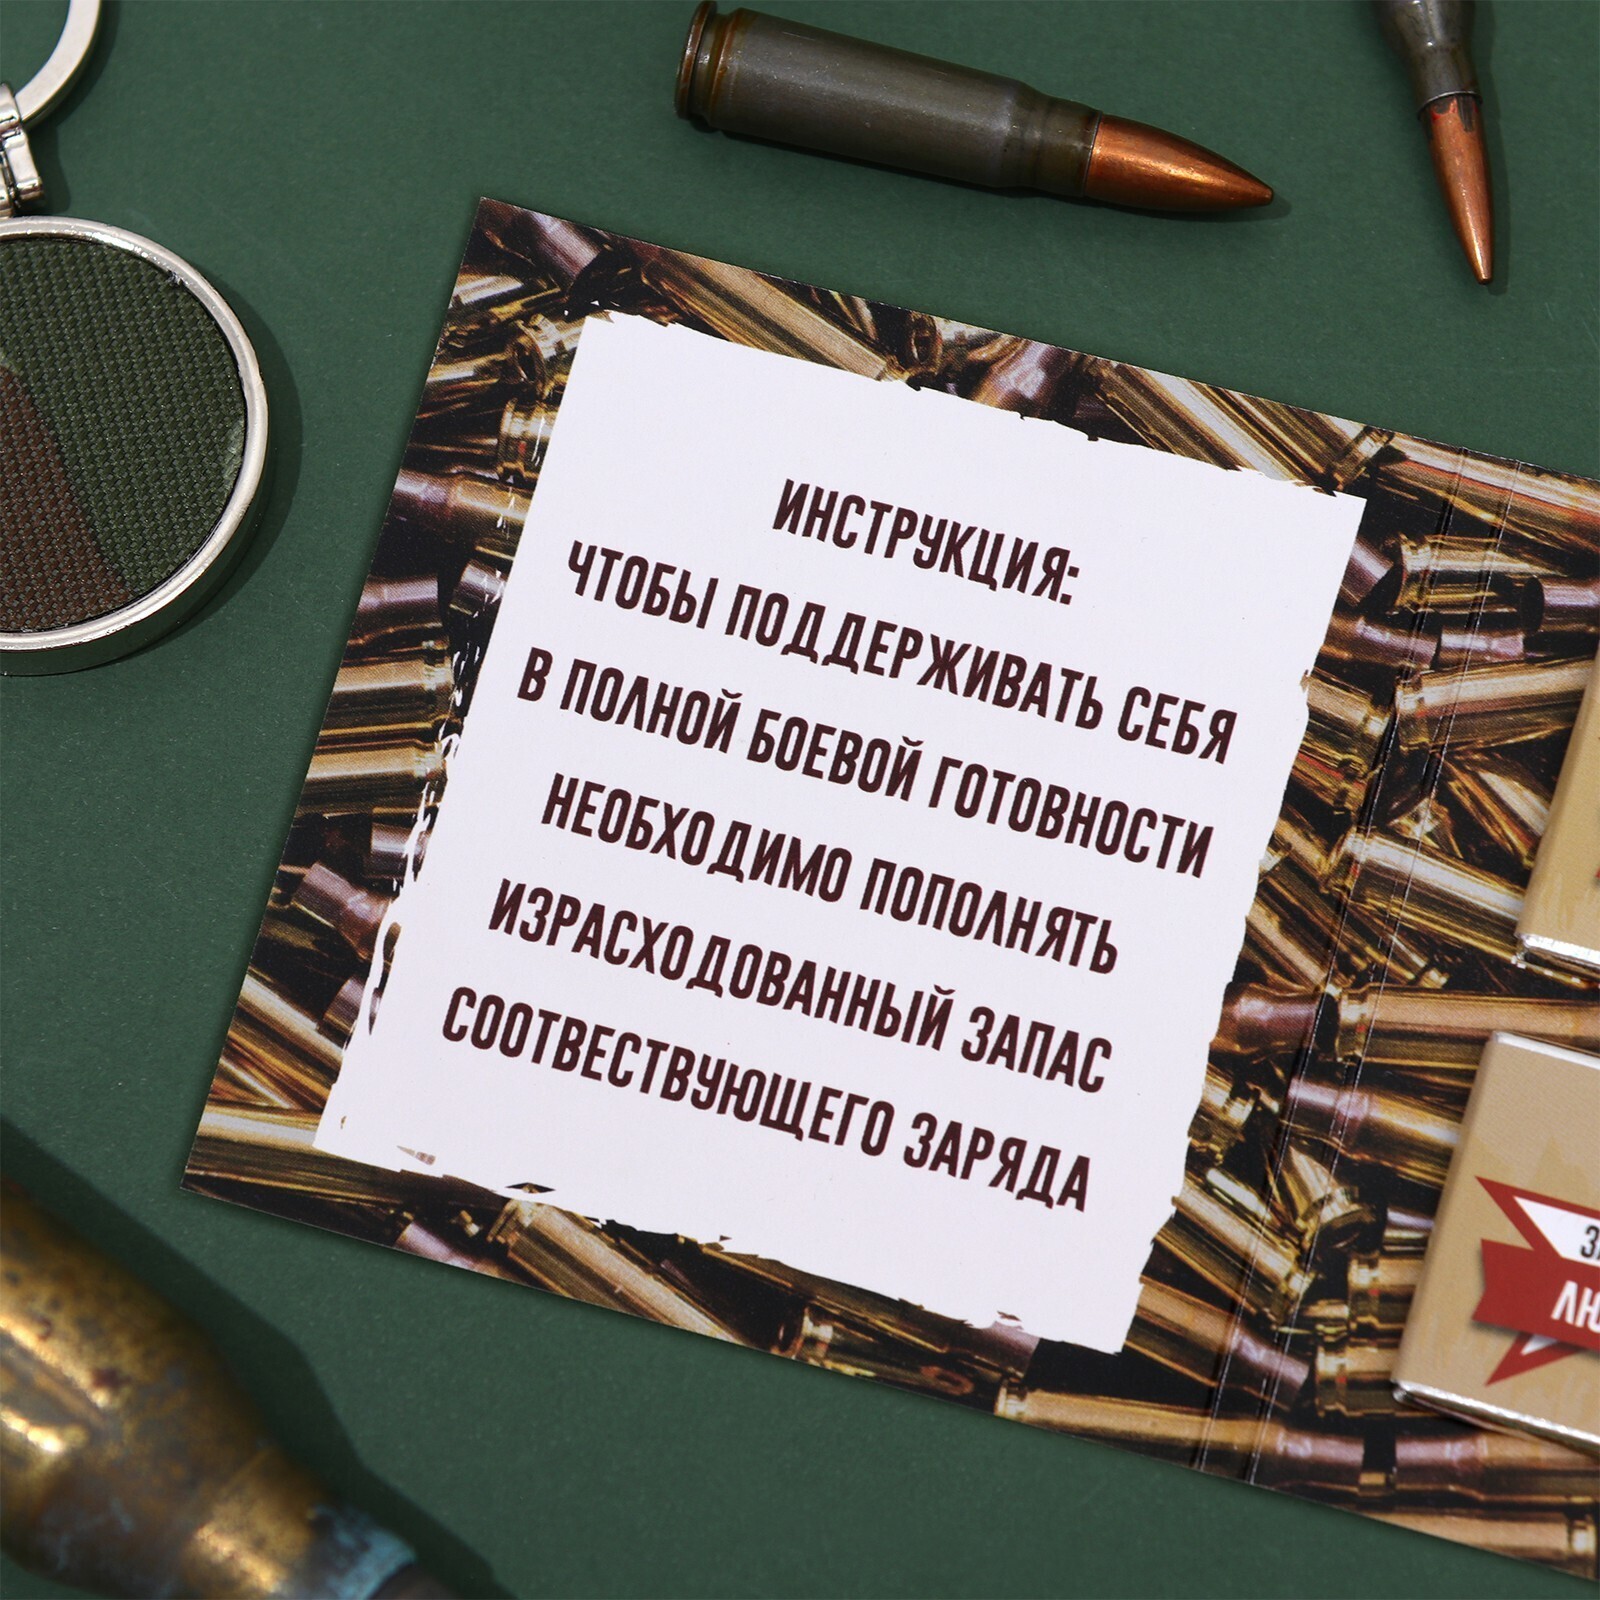 ИНСТРУКЦИЯ:
ЧТОБЫ ПОДДЕРЖИВАТЬ СЕБЯ
В ПОЛНОЙ БОЕВОЙ ГОТОВНОСТИ
НЕОБХОДИМО ПОПОЛНЯТЬ
ИЗРАСХОДОВАННЫЙ ЗАПАС
СООТВЕСТВУЮЩЕГО ЗАРЯДА